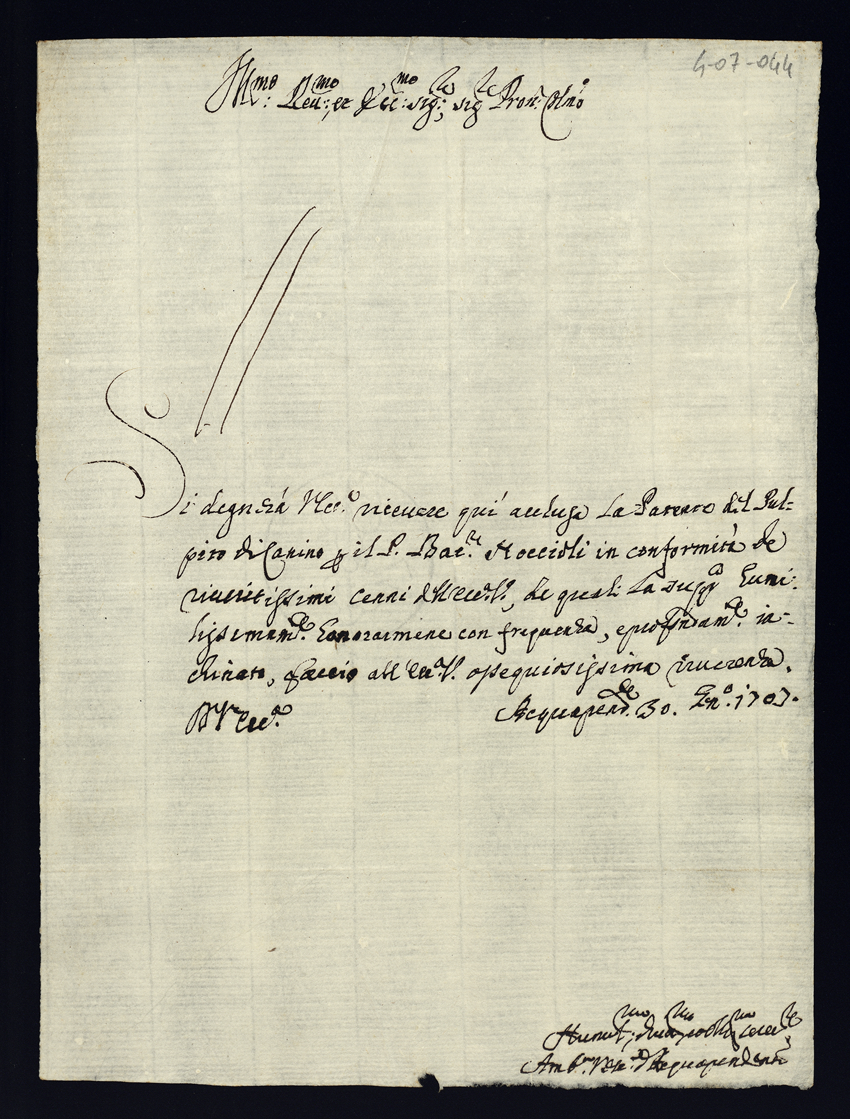 4-07-044
Ill.mo Rev.mo et Ecc.mo Sig.re Sig.re Pron. Col.mo
Si degnerà V. Ecc.a ricevere quì acclusa la Patente del Pul=
pito di Canino p il P. Bac.re Noccioli in conformità de
riveritissimi cenni dell'Ecc.a V.a, de quali la supp.co humi=
lissimam.te honorarmene con frequenza, e profondam.te in=
chinato, faccio all'Ecc.a V. ossequiosissima riverenza.
D V. Ecc.a
Acquapend.te 30. Gen.o 1707.
Humil.mo Div.mo et Obblig.mo Serv.re
Amb.o Vesc.o d'Acquapendente